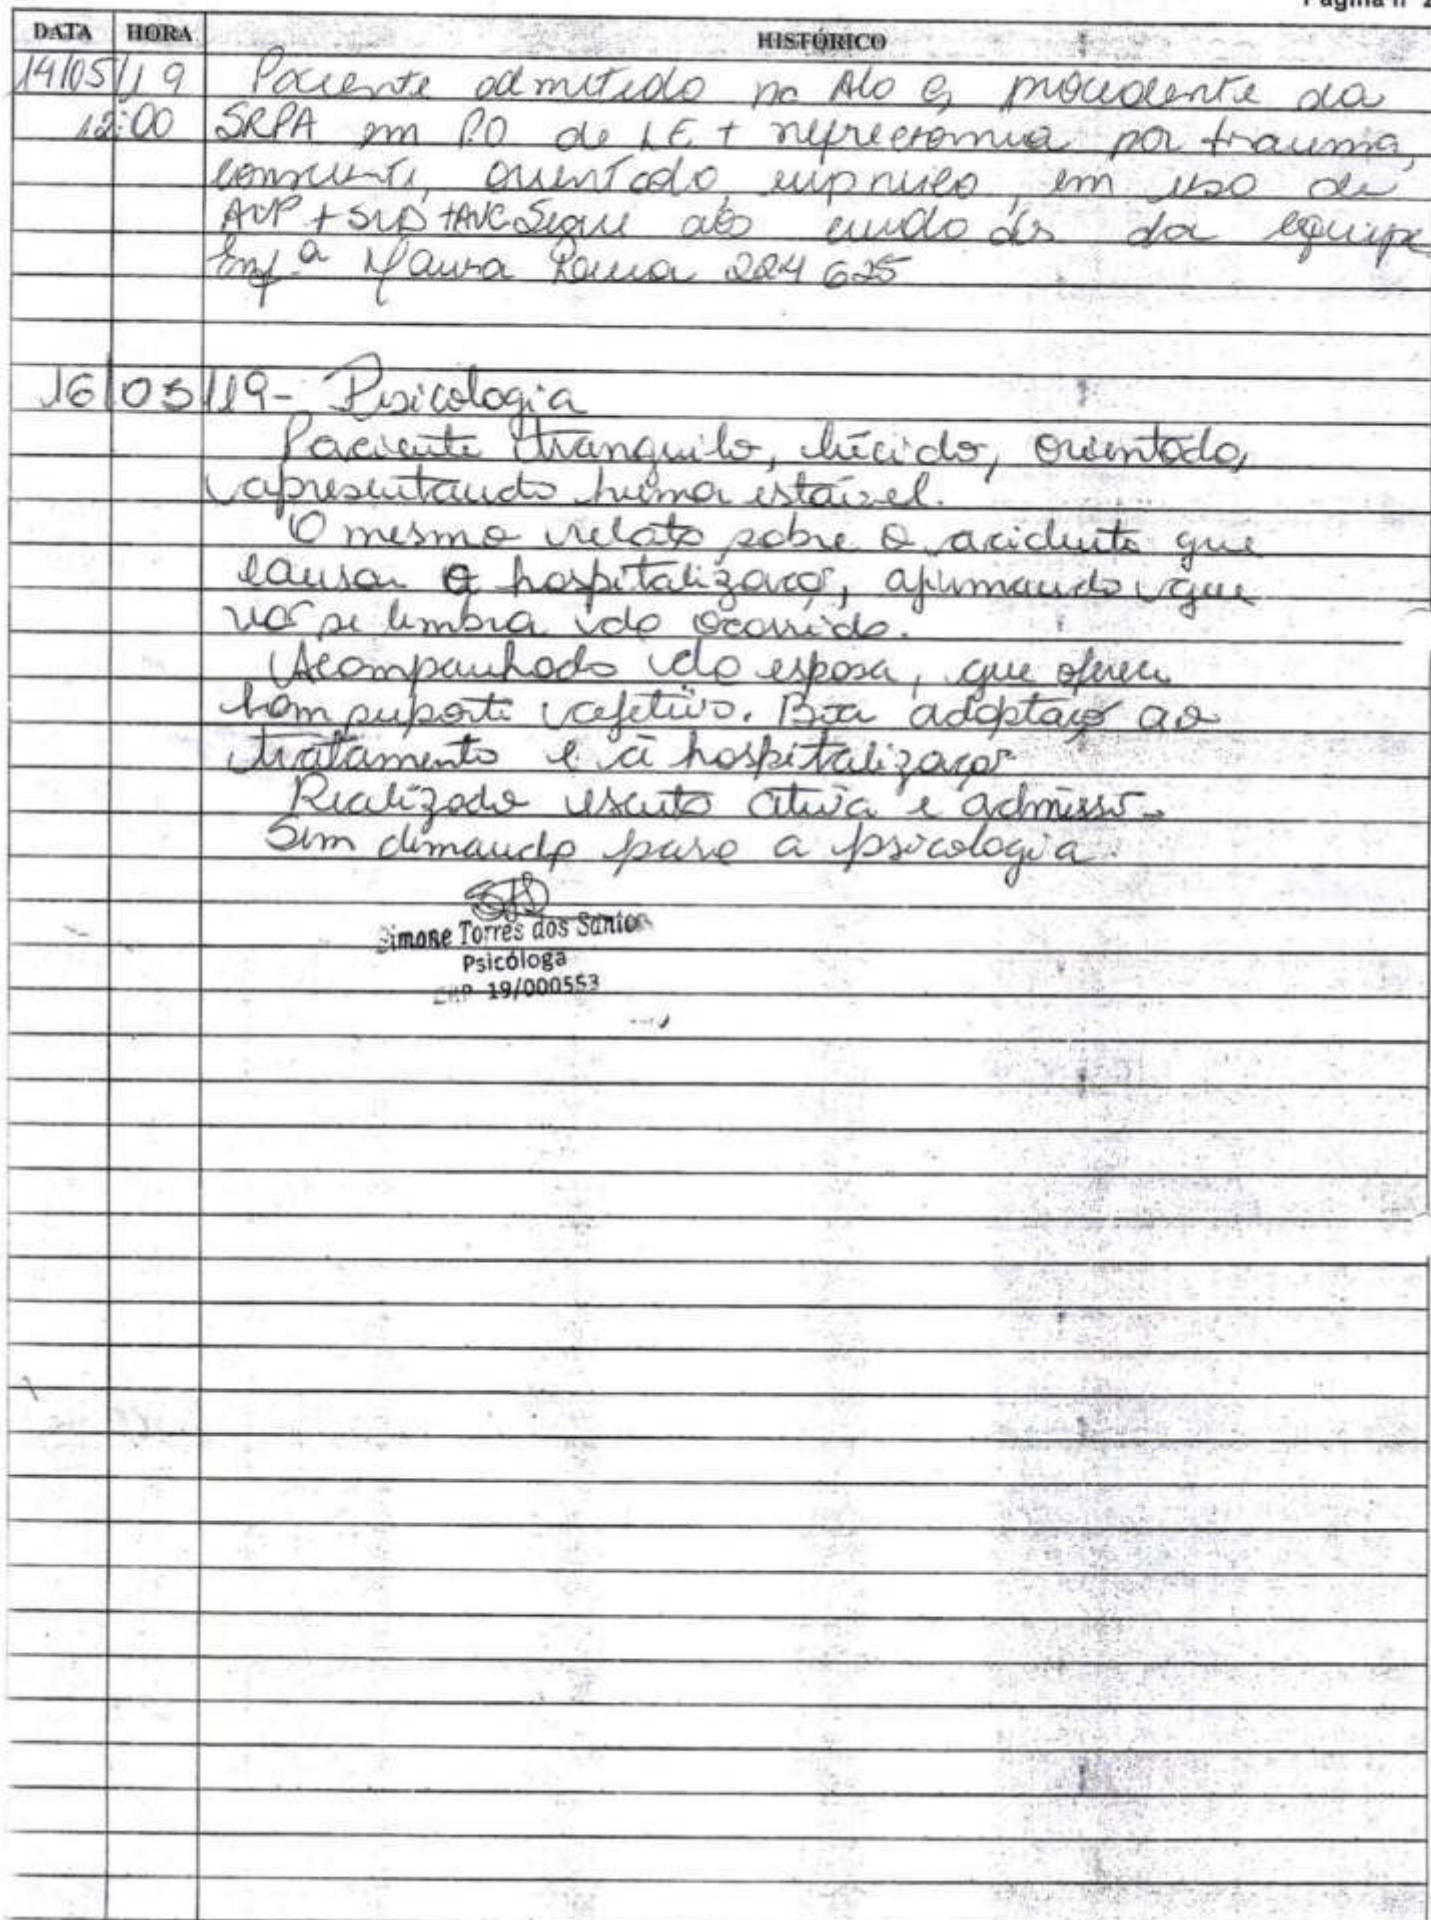 Página nº 2
DATA HORA HISTÓRICO
14/05/19 Paciente admitido na Ala G, procedente da
12:00 SRPA em P.O de LE + nefrectomia por trauma,
consciente, orientado, eupneico, em uso de
AVP + SVD + AVC Segue aos cuidados da equipe
Enfª Maura 224 625
16/05/19 - Psicologia
Paciente tranquilo, lúcido, orientado,
apresentando humor estável.
O mesmo relata sobre o acidente que
causou a hospitalização, afirmando que
não se lembra do ocorrido.
Acompanhado da esposa, que oferece
bom suporte afetivo. Boa adaptação ao
tratamento e à hospitalização
Realizado escuta ativa e admissão.
Sem demanda para a psicologia.
Simone Torres dos Santos
Psicóloga
CRP 19/000553